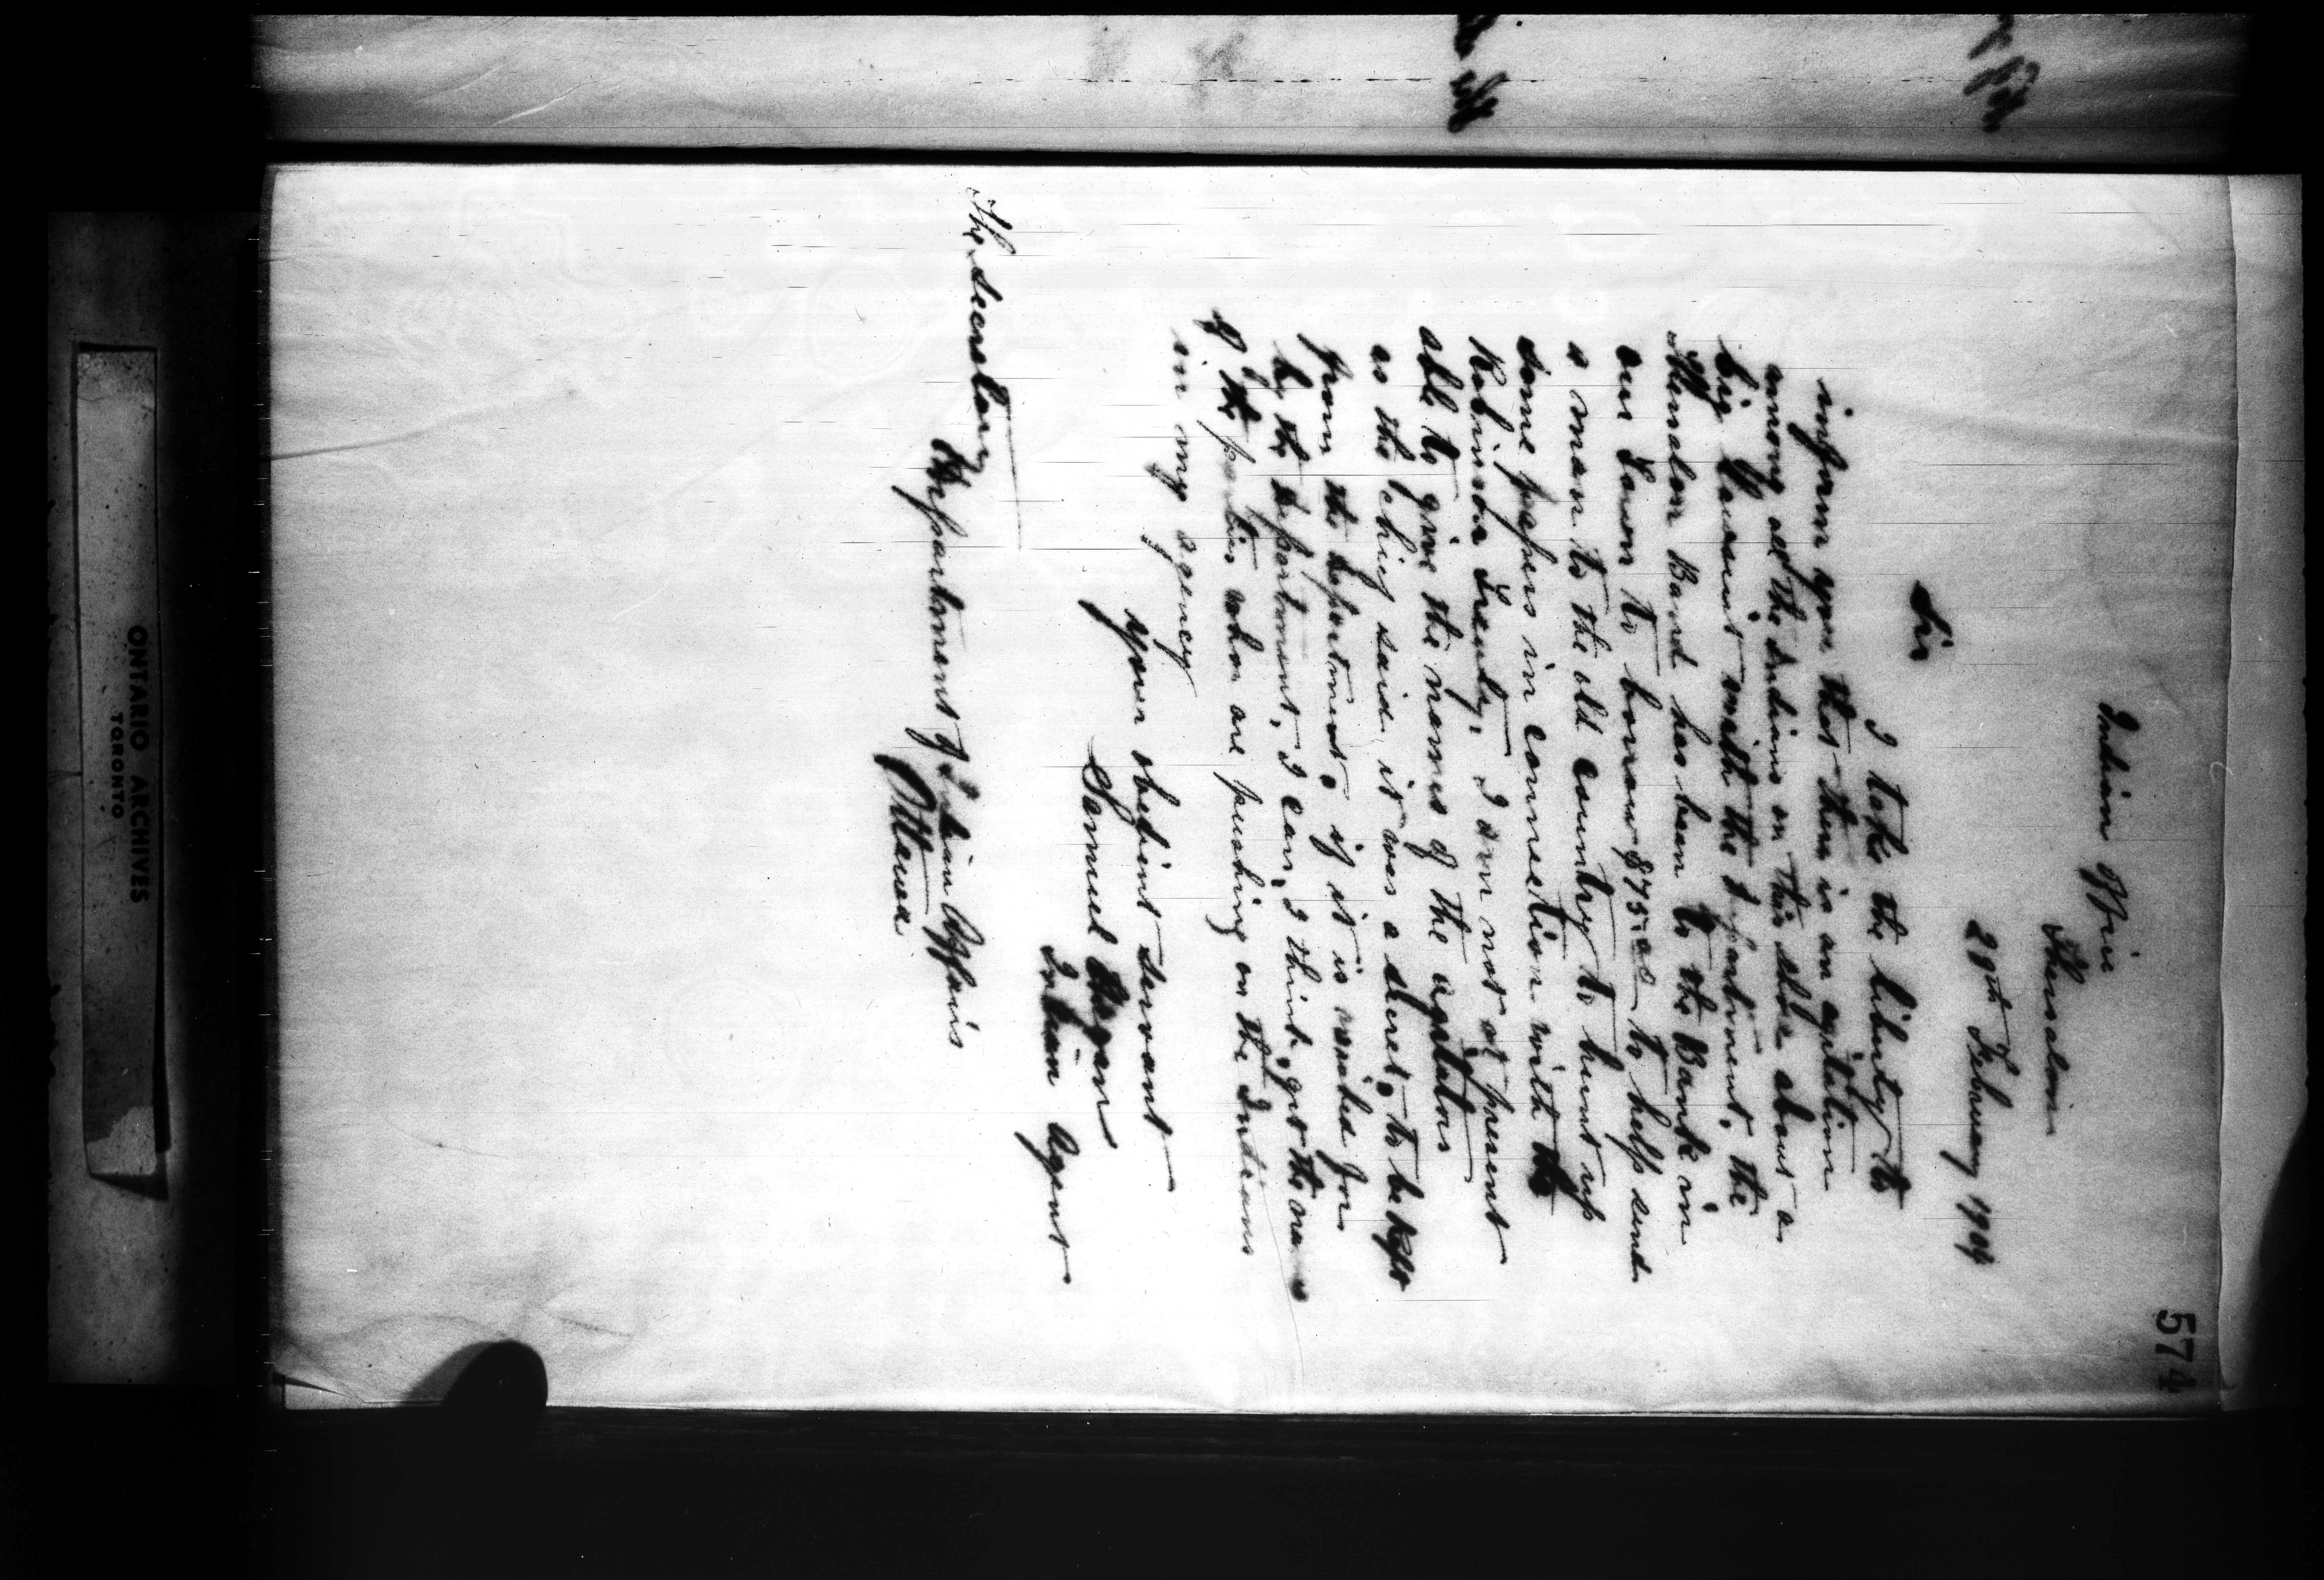 574
Indian Office
Thessalon
28th February 1904
Sir
I take the liberty to
inform you that there is an agitation
among all the Indians on this shore about a
big Lawsuit with the Department. the
Thessalon Band has been to the Bank in
our Town to borrow $75.00 to help send
a man to the old country to hunt up
some papers in connection with the
Robinson Treaty. I am not at present
able to give the names of the agitators
as the chief said it was a secret, to be kept
from the Department, if it is wanted for
by the Department, I can, I think, get the one
of the parties whom are pushing on the Indians
in my agency
your obedient servant
Samuel Hagan
Indian Agent
The Secretary
Department of Indian Affairs
Ottawa
ONTARIO ARCHIVES
TORONTO